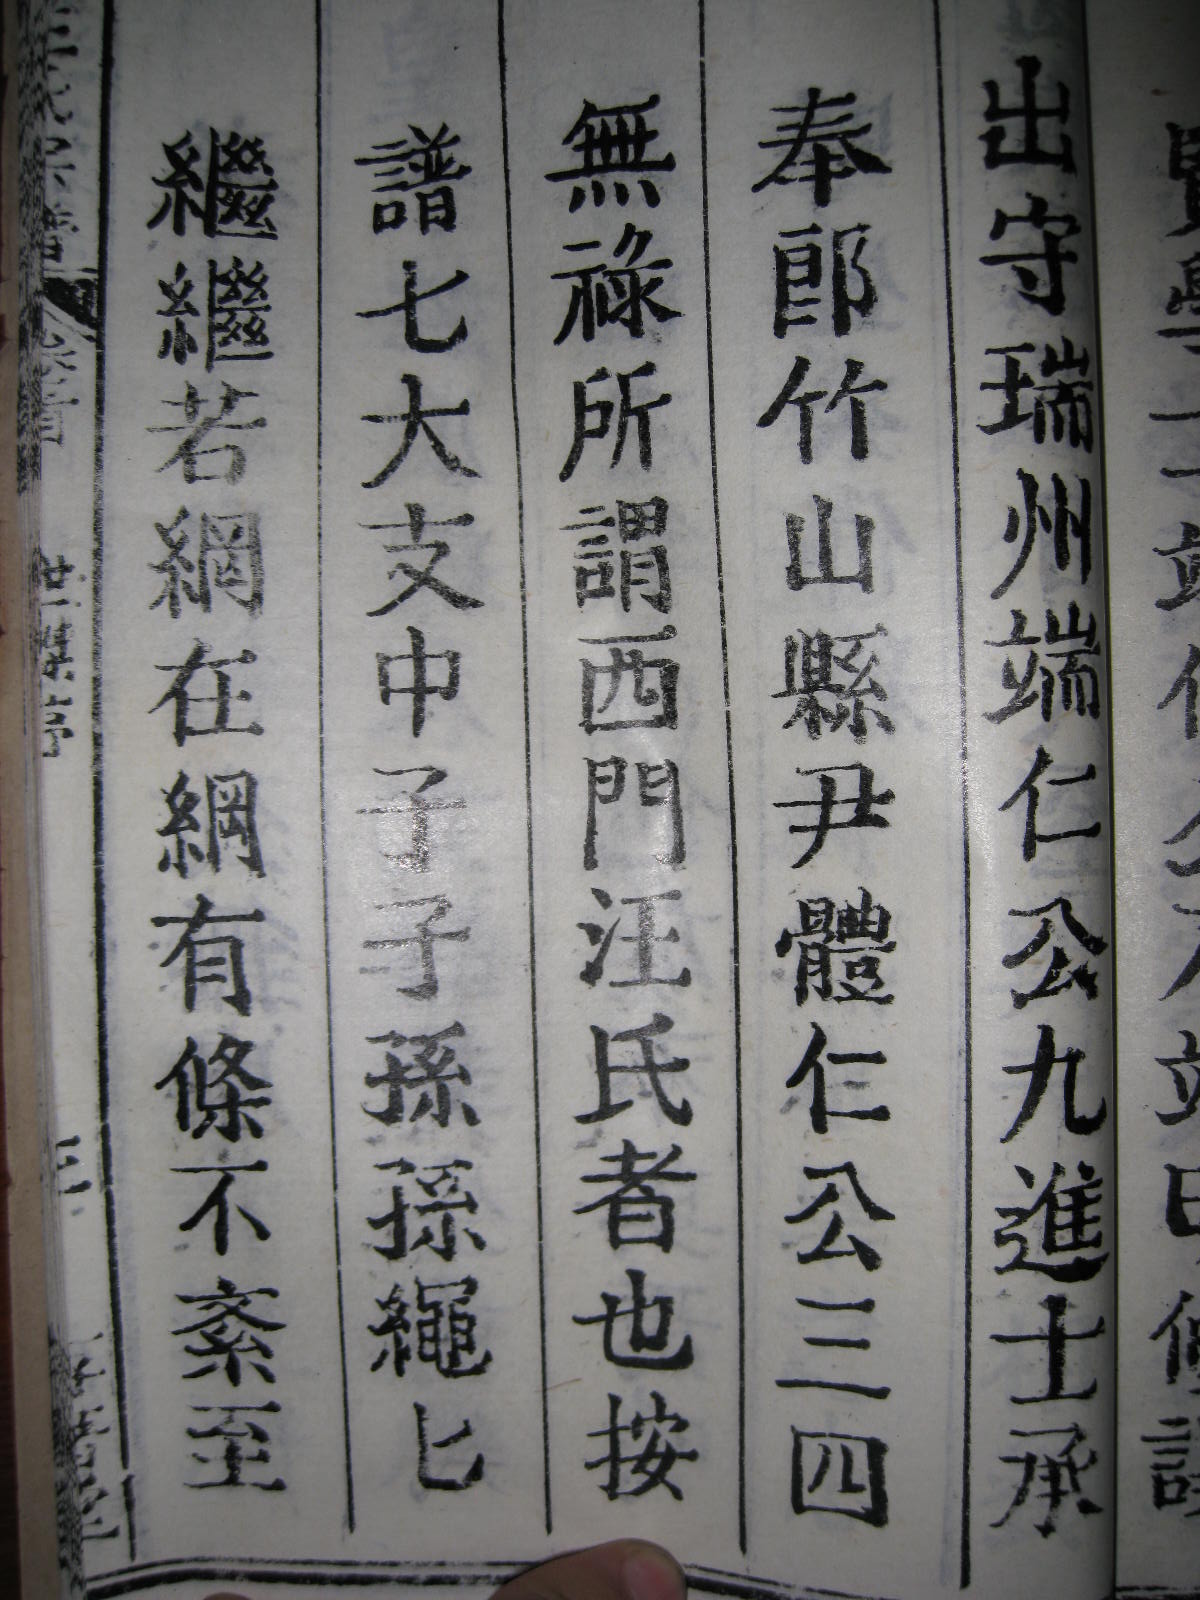 出守瑞州端仁公九進士承
奉郎竹山縣尹體仁公三四
無祿所謂西門汪氏者也按
譜七大支中子子孫孫繩匕
繼繼若綱在綱有條不紊至